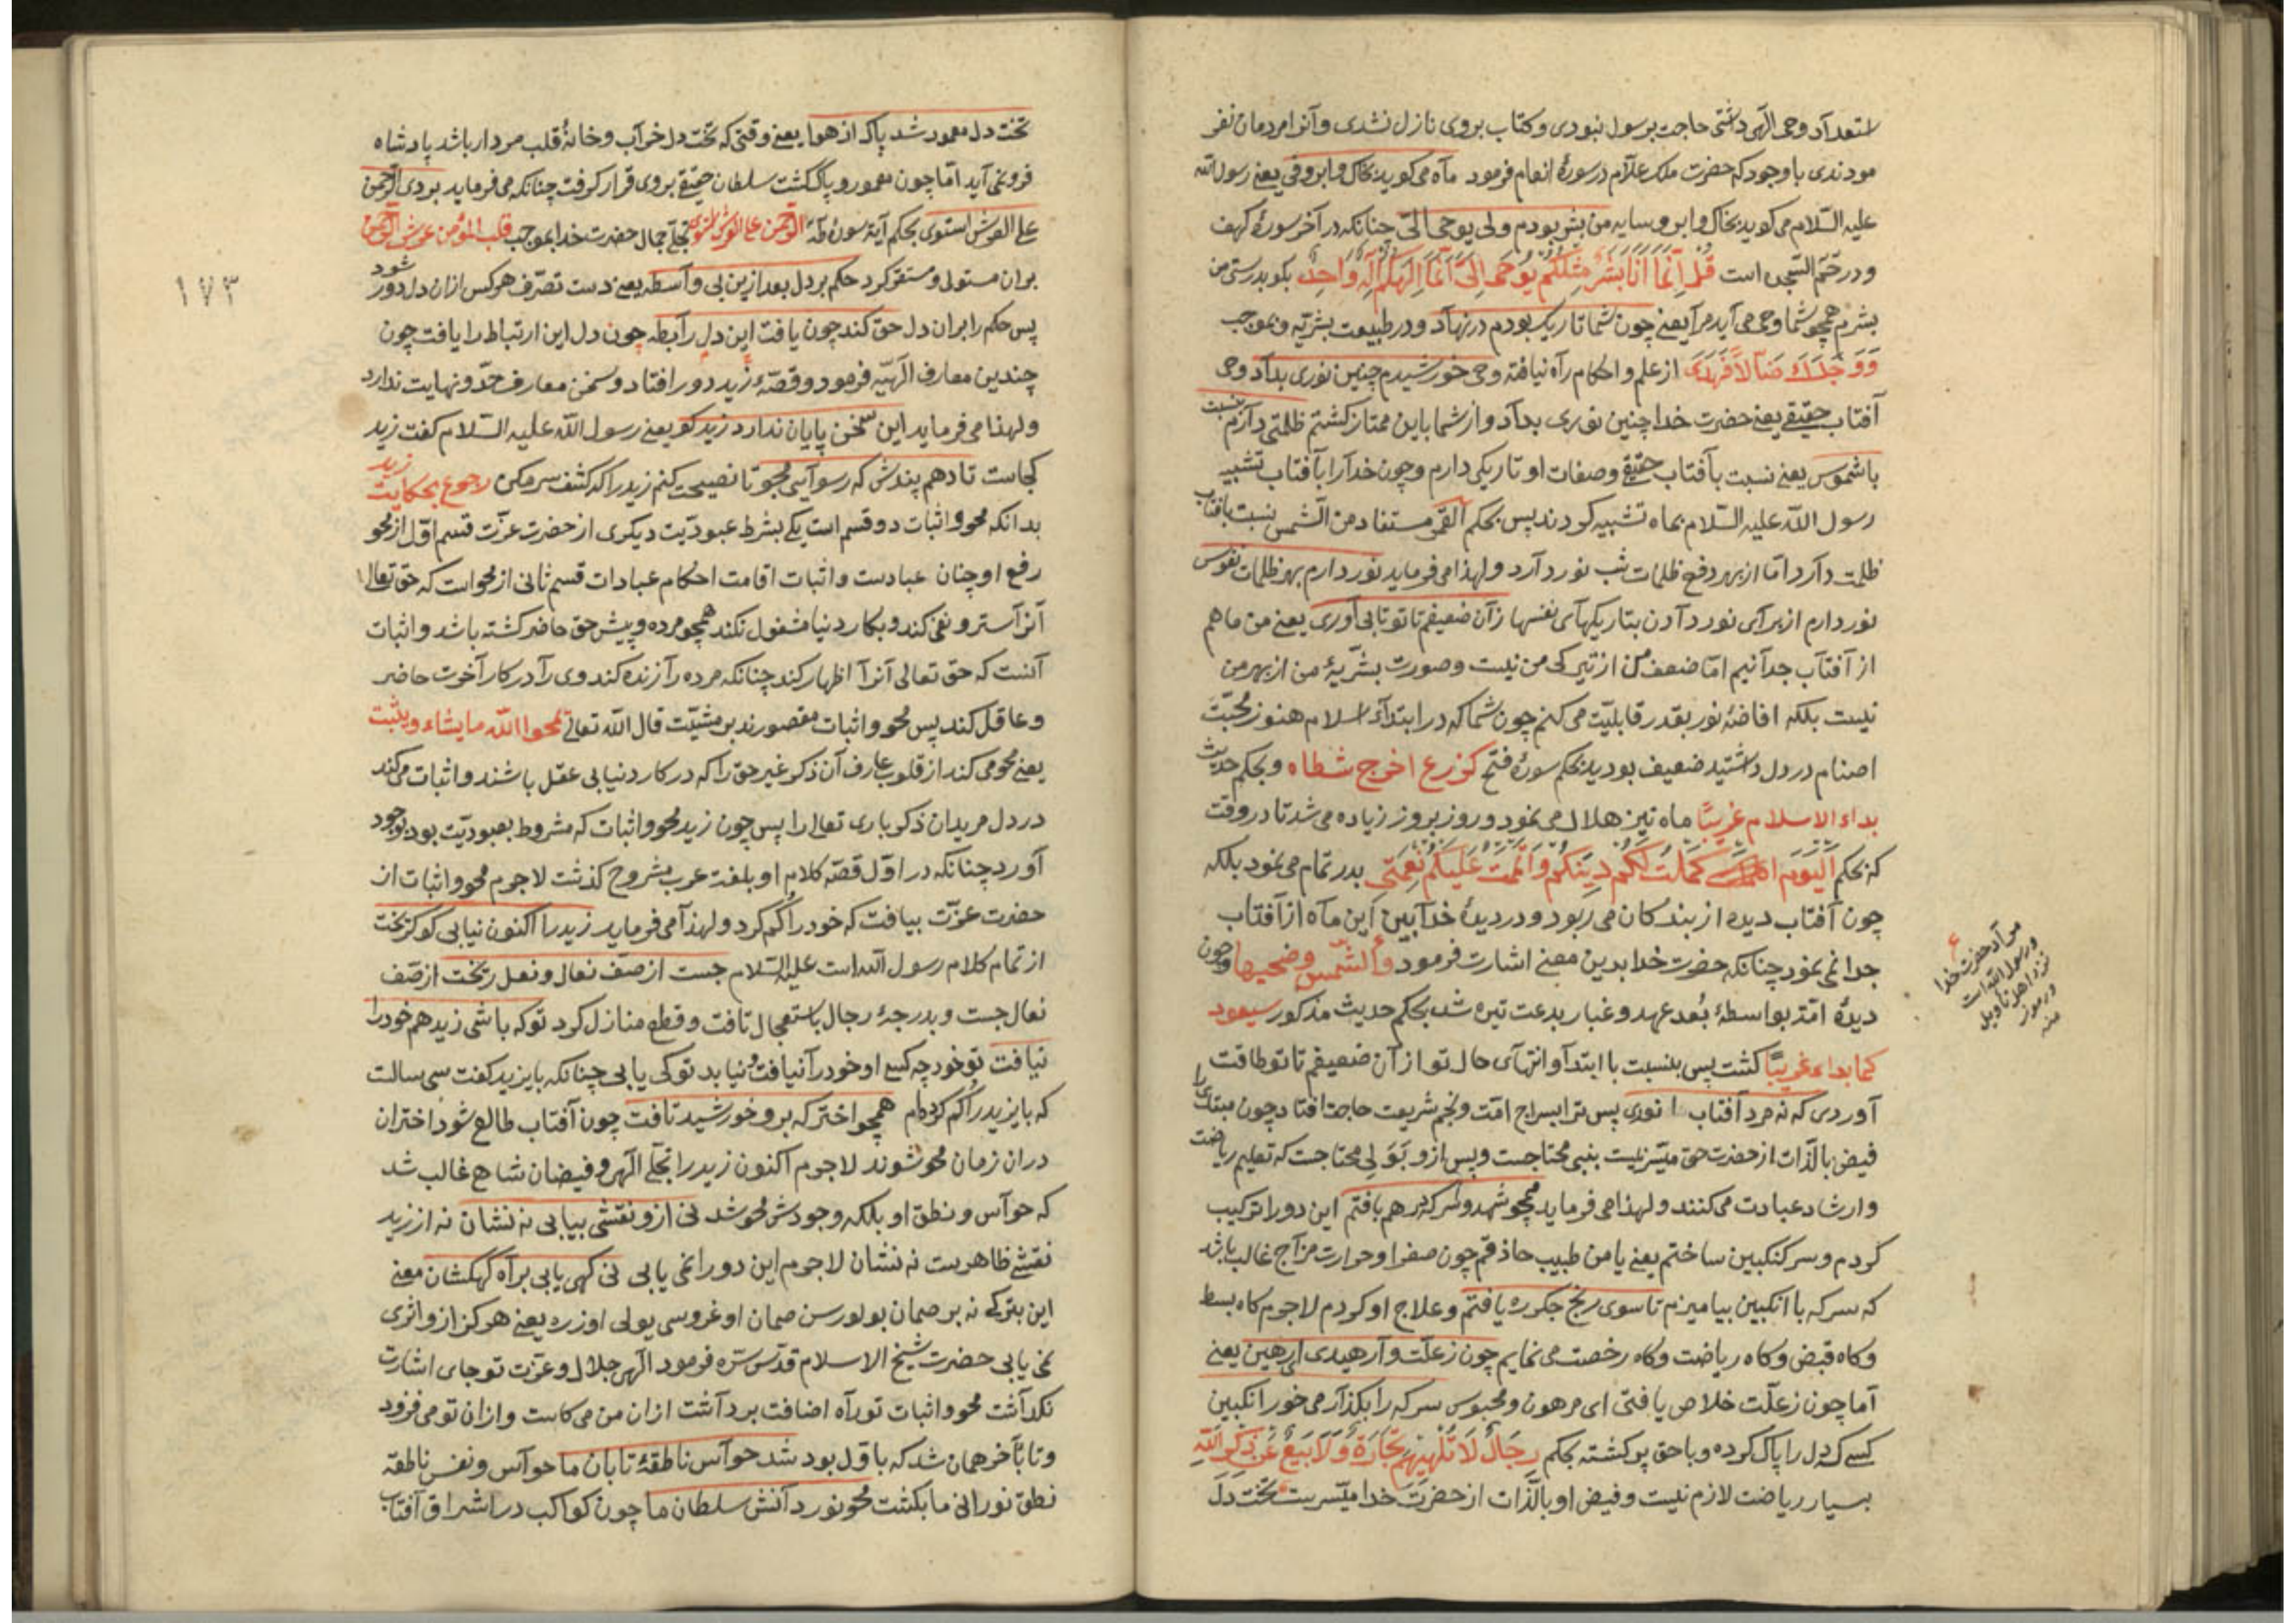 استعداد وحی الهی داشتی حاجت برسول نبودی و کتاب بروی نازل نشدی و آنرا مردمان نفر
مودندی باوجود که حضرت ملک علام در سورهٔ انعام فرمود ماه می کوید بخاک و ابر و فی یعنی رسول الله
علیه السلام می کوید بخاک و ابر و سایه من بشر بودم ولی یوحی الیّ چنانکه در آخر سورهٔ کهف
و در حم السجده است قُلْ اِنَّمَا اَنَا بَشَرٌ مِثْلُكُمْ يُوحَى اِلَىَّ اَنَّمَا اِلَهُكُمْ اِلَهٌ وَاحِدٌ بکو بدرستی من
بشرم همچو شما وحی می آید مرا یعنی چون شما تاریک بودم در نهاد و در طبیعت بشریه و بموجب
وَوَجَدَكَ ضَالًّا فَهَدَى از علم و احکام راه نیافته وحی خورشیدم چنین نوری بداد وحی
آفتاب حقیقی یعنی حضرت خدا چنین نوری بداد و از شما باین ممتاز کشتم ظلمتی دارم بنسبت
با شموس یعنی نسبت بآفتاب حقیقی و صفات او تاریکی دارم و چون خدا را بآفتاب تشبیه
رسول الله علیه السلام بماه تشبیه کردند پس بحکم القمر مستفاد من الشمس نسبت بافتاب
ظلمت دارد اما از بهر دفع ظلمات شب نور دارد و لهذا می فرماید نور دارم بهر ظلمات نفوس
نور دارم از برای نور دادن بتاریکیهای نفسها زان ضعیفم تا تو تابی آوری یعنی من ماهم
از آفتاب جدا نیم اما ضعف من از تیرکی من نیست و صورت بشریهٔ من از بهر من
نیست بلکه افاضهٔ نور بقدر قابلیت می کنم چون شما که در ابتداء اسلام هنوز محبت
اصنام در دل داشتید ضعیف بودید بحکم سورهٔ فتح کزرع اخرج شطاه و بحکم حدیث
بداء الاسلام غریبًا ماه نیز هلال می نمود و روز بروز زیاده می شد تا در وقت
که بحکم اَلْيَوْمَ اكملت لَكُمْ دِينَكُمْ وَاَتْمَمْتُ عَلَيْكُمْ نِعْمَتِى بدر تمام می نمود بلکه
چون آفتاب دیده از بندکان می ربود و در دیدهٔ خدا بین این ماه از آفتاب
جدا نمی نمود چنانکه حضرت خدا بدین معنی اشارت فرمود وَالشَّمْسِ وَضُحَيهَا و چون
دیدهٔ امت بواسطهٔ بُعد عهد و غبار بدعت تیره شد بحکم حدیث مذکور سیعود
کما بداء غریبًا کشت پس بنسبت با ابتدا و انتهای حال تو ازان ضعیفم تا تو طاقت
آوردی که نه مرد آفتاب انوری پس ترا بسراج امت و نجم شریعت حاجت افتاد چون مبتدی را
فیض بالذات از حضرت حق میسر نیست بنبی محتاجست و پس از و بَوَلی محتاجست که تعلیم ریاضت
و ارشاد عبادت می کنند و لهذا می فرماید همچو شهد و سرکه در هم بافتم این دو را ترکیب
کردم و سرکنکبین ساختم یعنی یا من طبیب حاذقم چون صفرا و حرارت مزاج غالب باشد
که سرکه با انکبین بیامیزم تا سوی رنج جکر ره یافتم و علاج او کردم لاجرم کاه بسط
و کاه قبض و کاه ریاضت و کاه رخصت می نمایم چون ز علت وارهیدی ای رهین یعنی
اما چون ز علت خلاص یافتی ای مرهون و محبوس سرکه را بکذار می خور انکبین
کسی که دل را پاک کرده و با حق پر کشته بحکم رِجَالٌ لَا تُلْهِيهِمْ تِجَارَةٌ وَلَا بَيْعٌ عَنْ ذِكْرِ اللهِ
بسیار ریاضت لازم نیست و فیض او بالذات از حضرت خدا میسرست تخت دل
مراد حضرت خدا
و رسول الله است
نزد اهل تاویل
و رموز
منه
تخت دل معمور شد پاک از هوا یعنی وقتی که تخت دل خراب و خانهٔ قلب مردار باشد پادشاه
فرو نمی آید اما چون معمور و پاک کشت سلطان حقیقی بروی قرار کرفت چنانکه می فرماید بر وی الرحمن
علی العرش استوی بحکم آیهٔ سورهٔ طه الرحمن علی العرش استوی تجلّئ جمال حضرت خدا بموجب قلب المؤمن عرش الرحمن
بران مستولی و مستقر کرد حکم بر دل بعد ازین بی واسطه یعنی دست تصرف هر کس ازان دل دور شود
١٧٣
پس حکم را بران دل حق کند چون یافت این دل رابطه چون دل این ارتباط را یافت چون
چندین معارف الهیّه فرمود و قصّهٔ زید دور افتاد و سخن معارف حد و نهایت ندارد
و لهذا می فرماید این سخن پایان ندارد زید کو یعنی رسول الله علیه السلام کفت زید
کجاست تا دهم پندش که رسوایی مجو تا نصیحت کنم زید را که کشف سر مکن رجوع بحکایت زید
بدانکه محو و اثبات دو قسم است یکی بشرط عبودیت دیکری از حضرت عزت قسم اول از محو
رفع اوچنان عبادست و اثبات اقامت احکام عبادات قسم ثانی از محو است که حق تعالی
آنرا ستر و نفی کند و بکار دنیا مشغول نکند همچو مرده و پیش حق حاضر کشته باشد و اثبات
آنست که حق تعالی آنرا اظهار کند چنانکه مرده را زنده کند وی را در کار آخرت حاضر
و عاقل کند پس محو و اثبات مقصورند بر مشیّت قال الله تعالی یمحوا الله ما یشاء و یثبت
یعنی محو می کند از قلوب عارف آن ذکر غیر حق را که در کار دنیا بی عقل باشند و اثبات می کند
در دل مریدان ذکر باری تعالی را پس چون زید محو و اثبات که مشروط بعبودیّت بود بوجود
آورد چنانکه در اول قصّه کلام او بلغت عرب مشروح کذشت لاجرم محو و اثبات از
حضرت عزّت بیافت که خود را کم کرد و لهذا می فرماید زید را اکنون نیابی کو کریخت
از تمام کلام رسول الله است علیه السلام جست از صف نعال و نعل ریخت از صف
نعال جست و بدرجهٔ رجال باستعجال تافت و قطع منازل کرد تو که باشی زید هم خود را
نیافت تو خود چه کسی او خود را نیافت و نیابد تو کی یابی چنانکه بایزید کفت سی سالست
که بایزید را کم کرده‌ام همچو اختر که برو خورشید تافت چون آفتاب طالع شود اختران
دران زمان محو شوند لاجرم اکنون زید را تجلّئ الهی و فیضان شاهی غالب شد
که حواس و نطق او بلکه وجودش محو شد نی ازو نقشی بیابی نه نشان نه از زید
نقشی ظاهرست نه نشان لاجرم این دو را نمی یابی نی کهی یابی براه کهکشان معنی
این بترکی نه بر صمان بولورسن صمان اوغروسی یولی اوزره یعنی هرکز ازو اثری
نمی یابی حضرت شیخ الاسلام قدس سره فرمود الهی جلال و عزّت تو جای اشارت
نکذاشت محو و اثبات تو راه اضافت برداشت ازان من می کاست و ازان تو می فزود
و تا بآخر همان شد که باول بود شد حواس ناطقهٔ تابان ما حواس و نفس ناطقه
نطق نورانی ما بکشت محو نور دانش سلطان ما چون کواکب در اشراق آفتاب